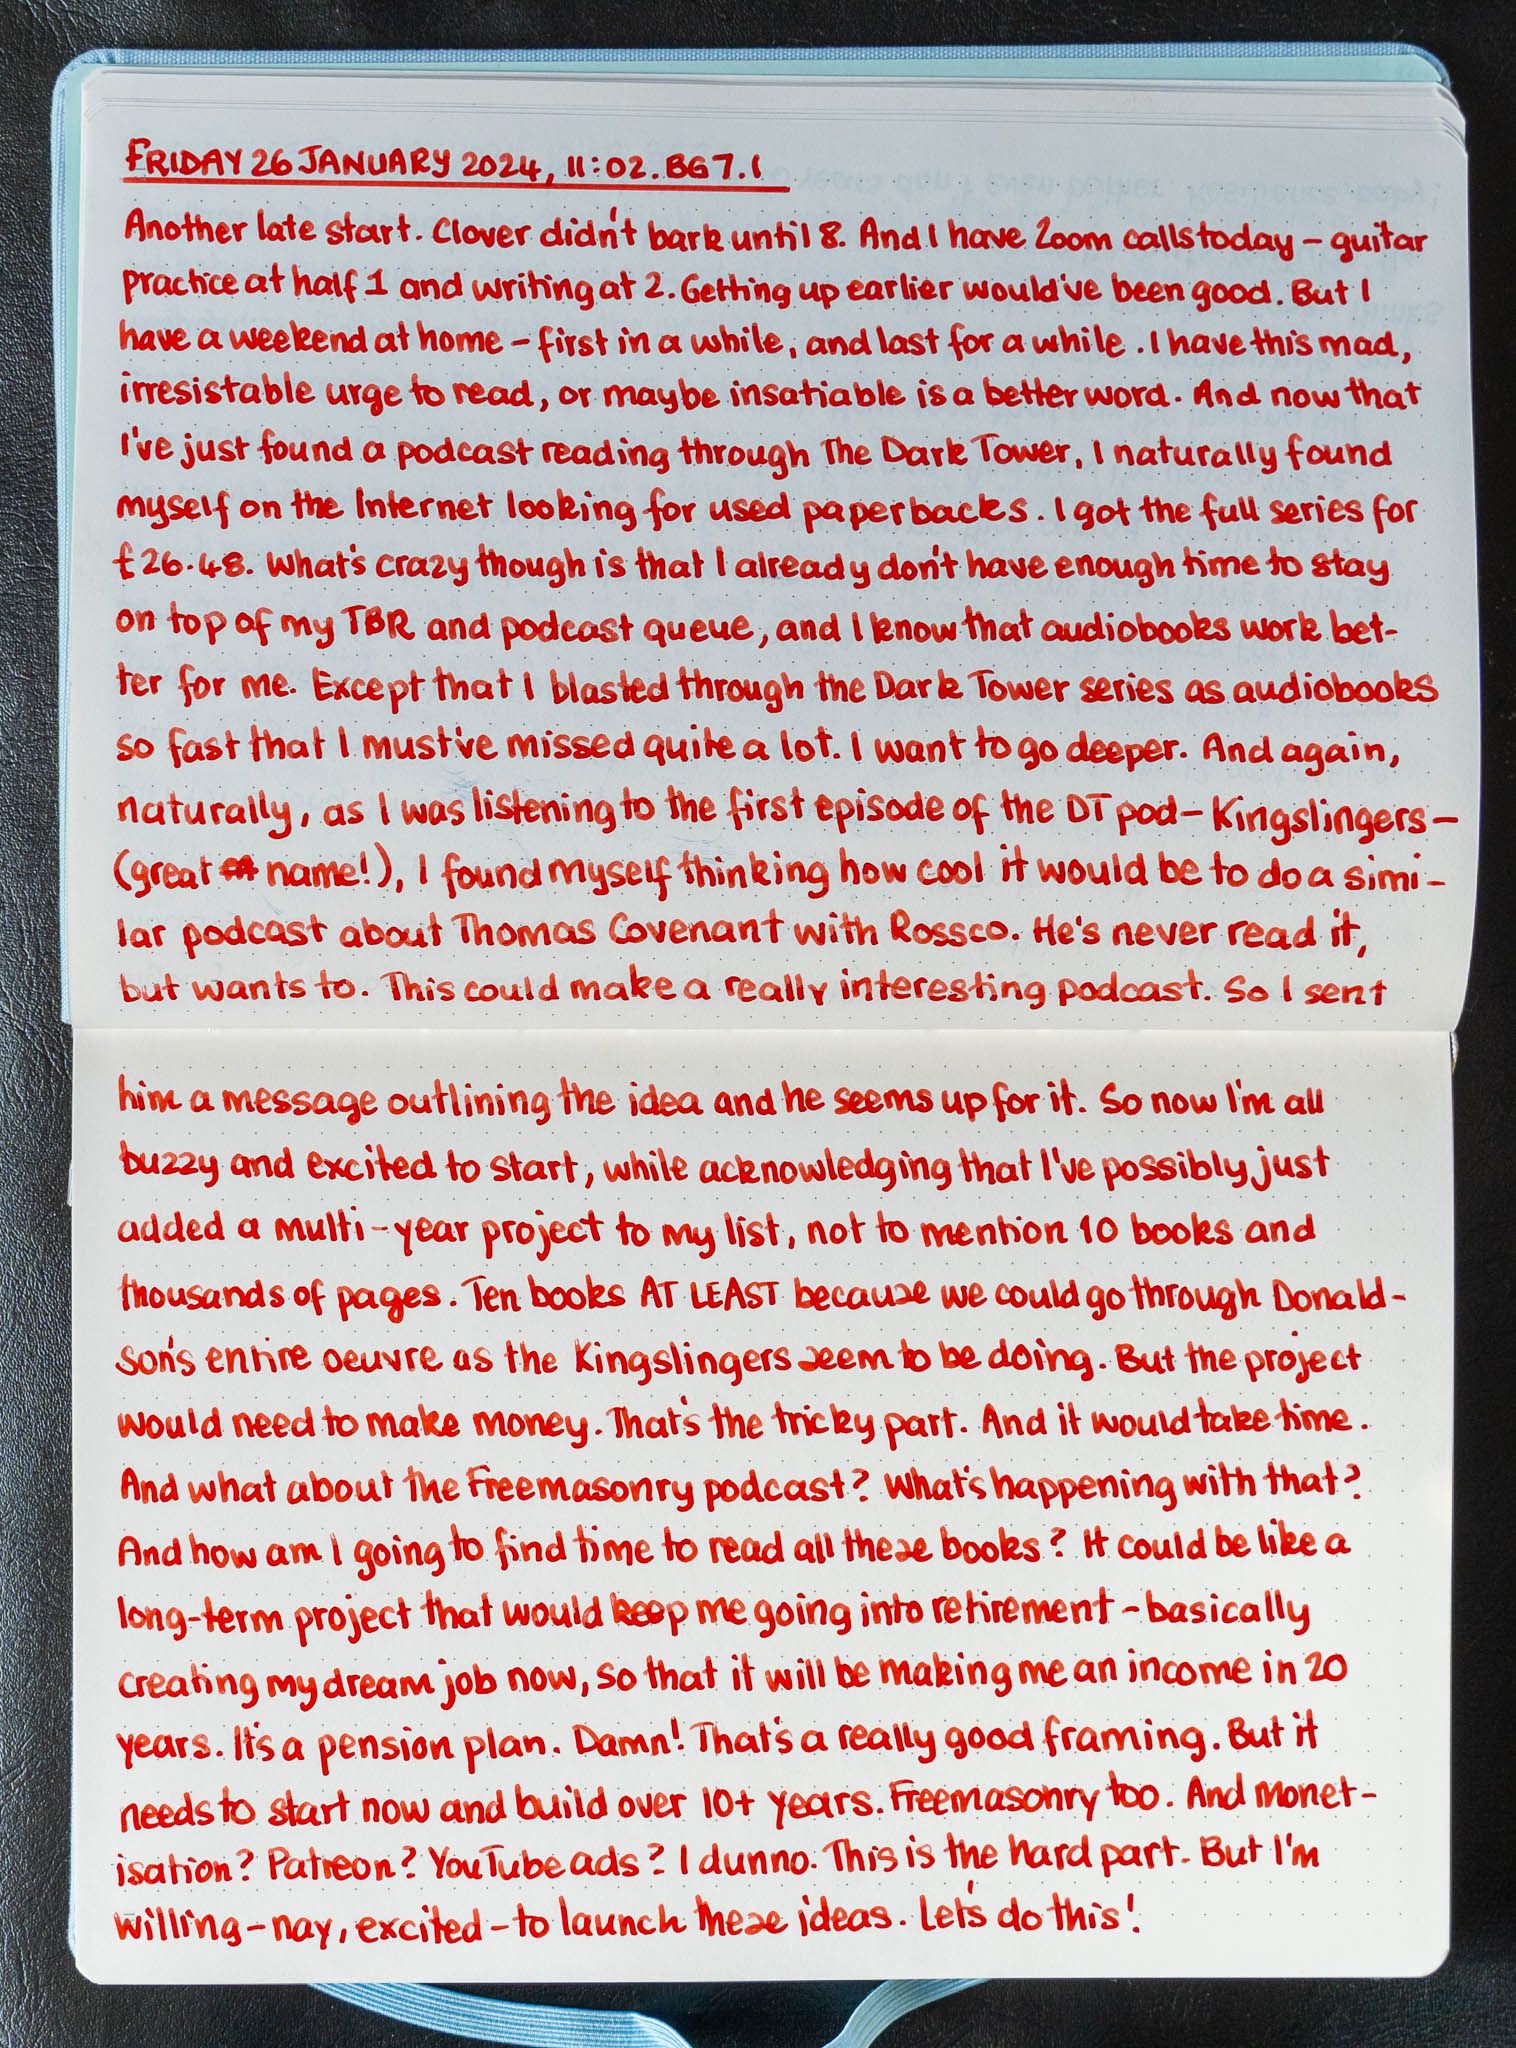 FRIDAY 26 JANUARY 2024, 11:02. BG7.1
Another late start. Clover didn't bark until 8. And I have Zoom calls today – guitar
practice at half 1 and writing at 2. Getting up earlier would've been good. But I
have a weekend at home – first in a while, and last for a while. I have this mad,
irresistable urge to read, or maybe insatiable is a better word. And now that
I've just found a podcast reading through The Dark Tower, I naturally found
myself on the Internet looking for used paperbacks. I got the full series for
£26.48. What's crazy though is that I already don't have enough time to stay
on top of my TBR and podcast queue, and I know that audiobooks work bet-
ter for me. Except that I blasted through the Dark Tower series as audiobooks
so fast that I must've missed quite a lot. I want to go deeper. And again,
naturally, as I was listening to the first episode of the DT pod – Kingslingers –
(great name!), I found myself thinking how cool it would be to do a simi-
lar podcast about Thomas Covenant with Rossco. He's never read it,
but wants to. This could make a really interesting podcast. So I sent
him a message outlining the idea and he seems up for it. So now I'm all
buzzy and excited to start, while acknowledging that I've possibly just
added a multi-year project to my list, not to mention 10 books and
thousands of pages. Ten books AT LEAST because we could go through Donald-
son's entire oeuvre as the Kingslingers seem to be doing. But the project
would need to make money. That's the tricky part. And it would take time.
And what about the Freemasonry podcast? What's happening with that?
And how am I going to find time to read all these books? It could be like a
long-term project that would keep me going into retirement – basically
creating my dream job now, so that it will be making me an income in 20
years. It's a pension plan. Damn! That's a really good framing. But it
needs to start now and build over 10+ years. Freemasonry too. And monet-
isation? Patreon? YouTube ads? I dunno. This is the hard part. But I'm
willing – nay, excited – to launch these ideas. Let's do this!